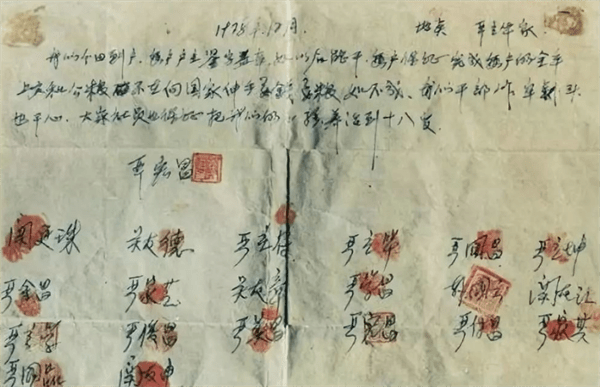 1978年12月。 地点 严立华家
我们分田到户,每户户主签字盖章,如以后能干,每户保证完成每户的全年
上交和公粮 不在向国家伸手要钱要粮,如不成,我们干部作牢刹头
也干心,大家社员也保证把我们的小孩养活到十八岁。
严宏昌
关廷珠 关友德 严立符 严立华 严国昌 严立坤
严金昌 严家芝 关友章 严学昌 韩国云 关友江
严立学 严俊昌 严美昌 严宏昌 严付昌 严家其
严国品 关友申